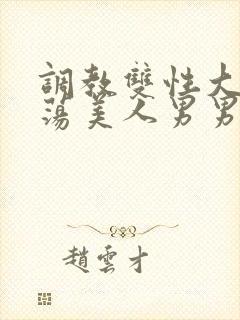 調教雙性大
蕩美人男男
趙雲才